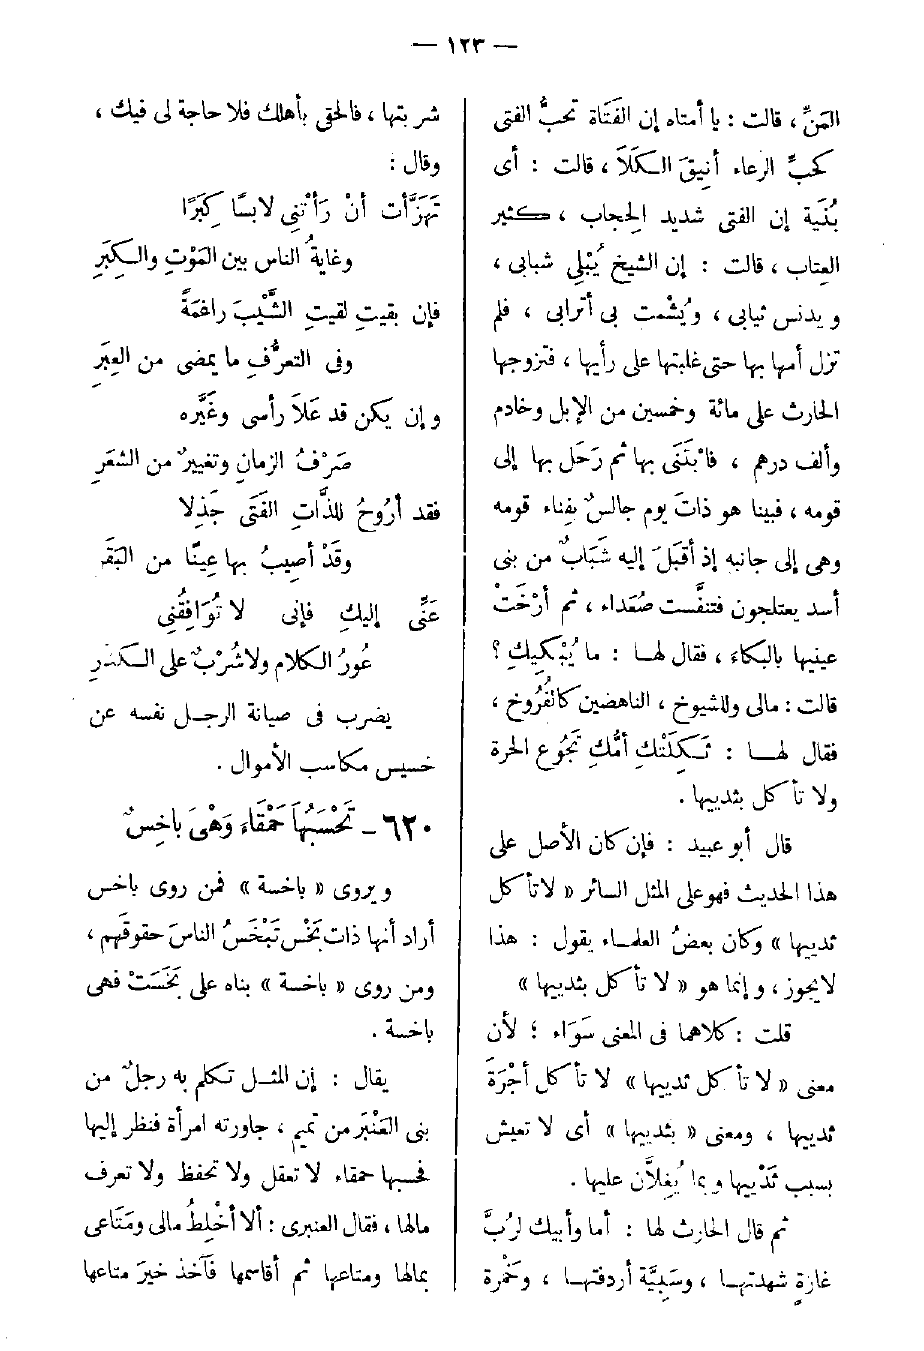 — ١٢٣ —
المَنِّ ، قالت : يا أمتاه إن الفَتَاة تحبُّ الفتى
كحبِّ الرعاء أنِيقَ الكَلَأ ، قالت : أى
بُنَية إن الفتى شديد الحِجاب ، كثير
العِتاب ، قالت : إن الشيخ يُبْلِي شبابى ،
ويدنس ثيابى ، ويُشْمت بى أترابى ، فلم
تزل أمها بها حتى غلبتها على رأيها ، فتزوجها
الحارث على مائة وخمسين من الإبل وخادم
وألف درهم ، فابْتَنَى بها ثم رَحَل بها إلى
قومه ، فبينا هو ذاتَ يوم جالسٌ بِفِناء قومه
وهى إلى جانبه إذ أقبَلَ إليه شَبَابٌ من بنى
أسد يعتلجون فتنفَّست صُعَداء ، ثم أرْخَتْ
عينيها بالبكاء ، فقال لهـا : ما يُبْكيكِ ؟
قالت : مالى وللشيوخ ، الناهضين كالفُرُوخ ،
فقال لهـا : ثَكِلَتْكِ أمُّكِ تَجُوع الحرة
ولا تأكل بثدييها .
قال أبو عبيد : فإن كان الأصل على
هذا الحديث فهو على المثل السائر « لا تأكل
ثدييها » وكان بعضُ العلماء يقول : هذا
لا يجوز ، وإنما هو « لا تأكل بثدييها »
قلت : كلاهما فى المعنى سَوَاء ؛ لأن
معنى « لا تأكل ثدييها » لا تأكل أجْرَةَ
ثدييها ، ومعنى « بثدييها » أى لا تعيش
بسبب ثَدْيَيها وبما يُغِلاَّن عليها .
ثم قال الحارث لها : أما وأبيك لرُبَّ
غارةٍ شهدتهـا ، وسَبِيَّة أردفتهـا ، وخَمْرة
شربتها ، فالحَقى بأهلك فلا حاجة لى فيك ،
وقال :
تَهَزَّأت أنْ رَأتْنِى لابسًا كِبَرًا
وغايةُ الناس بين المَوْتِ والكِبَرِ
فإن بقيتِ لقيتِ الشَّيْبَ راغمَةً
وفى التعرُّفِ ما يمضى من العِبَرِ
وإن يكن قد عَلاَ رأسى وغَيَّره
صَرْفُ الزمانِ وتغييرٌ من الشعَرِ
فقد أرُوحُ للذَّاتِ الفَتَى جَذِلا
وقَدْ أصِيبُ بها عِينًا من البَقَرِ
عَنِّى إليكِ فإنى لا تُوَافِقُنِى
عُورُ الكلام ولا شُرْبٌ على الكَدَرِ
يضرب فى صيانة الرجل نفسه عن
خسيس مكاسب الأموال .
٦٢٠ - تَحْسَبُهَا حَمْقَاءَ وَهْىَ بَاخِسٌ
ويروى « باخسة » فمن روى باخس
أراد أنها ذات بَخْس تَبْخَسُ الناسَ حقوقَهم ،
ومن روى « باخسة » بناه على بَخَسَتْ فهى
باخسة .
يقال : إن المثل تكلم به رجلٌ من
بنى العَنْبَر من تميم ، جاورته امرأة فنظر إليها
فحسبها حمقاء لا تعقل ولا تحفظ ولا تعرف
مالها ، فقال العنبرى : ألا أخْلِطُ مالى ومَتَاعى
بمالها ومتاعها ثم أقاسمها فآخذ خيرَ متاعها